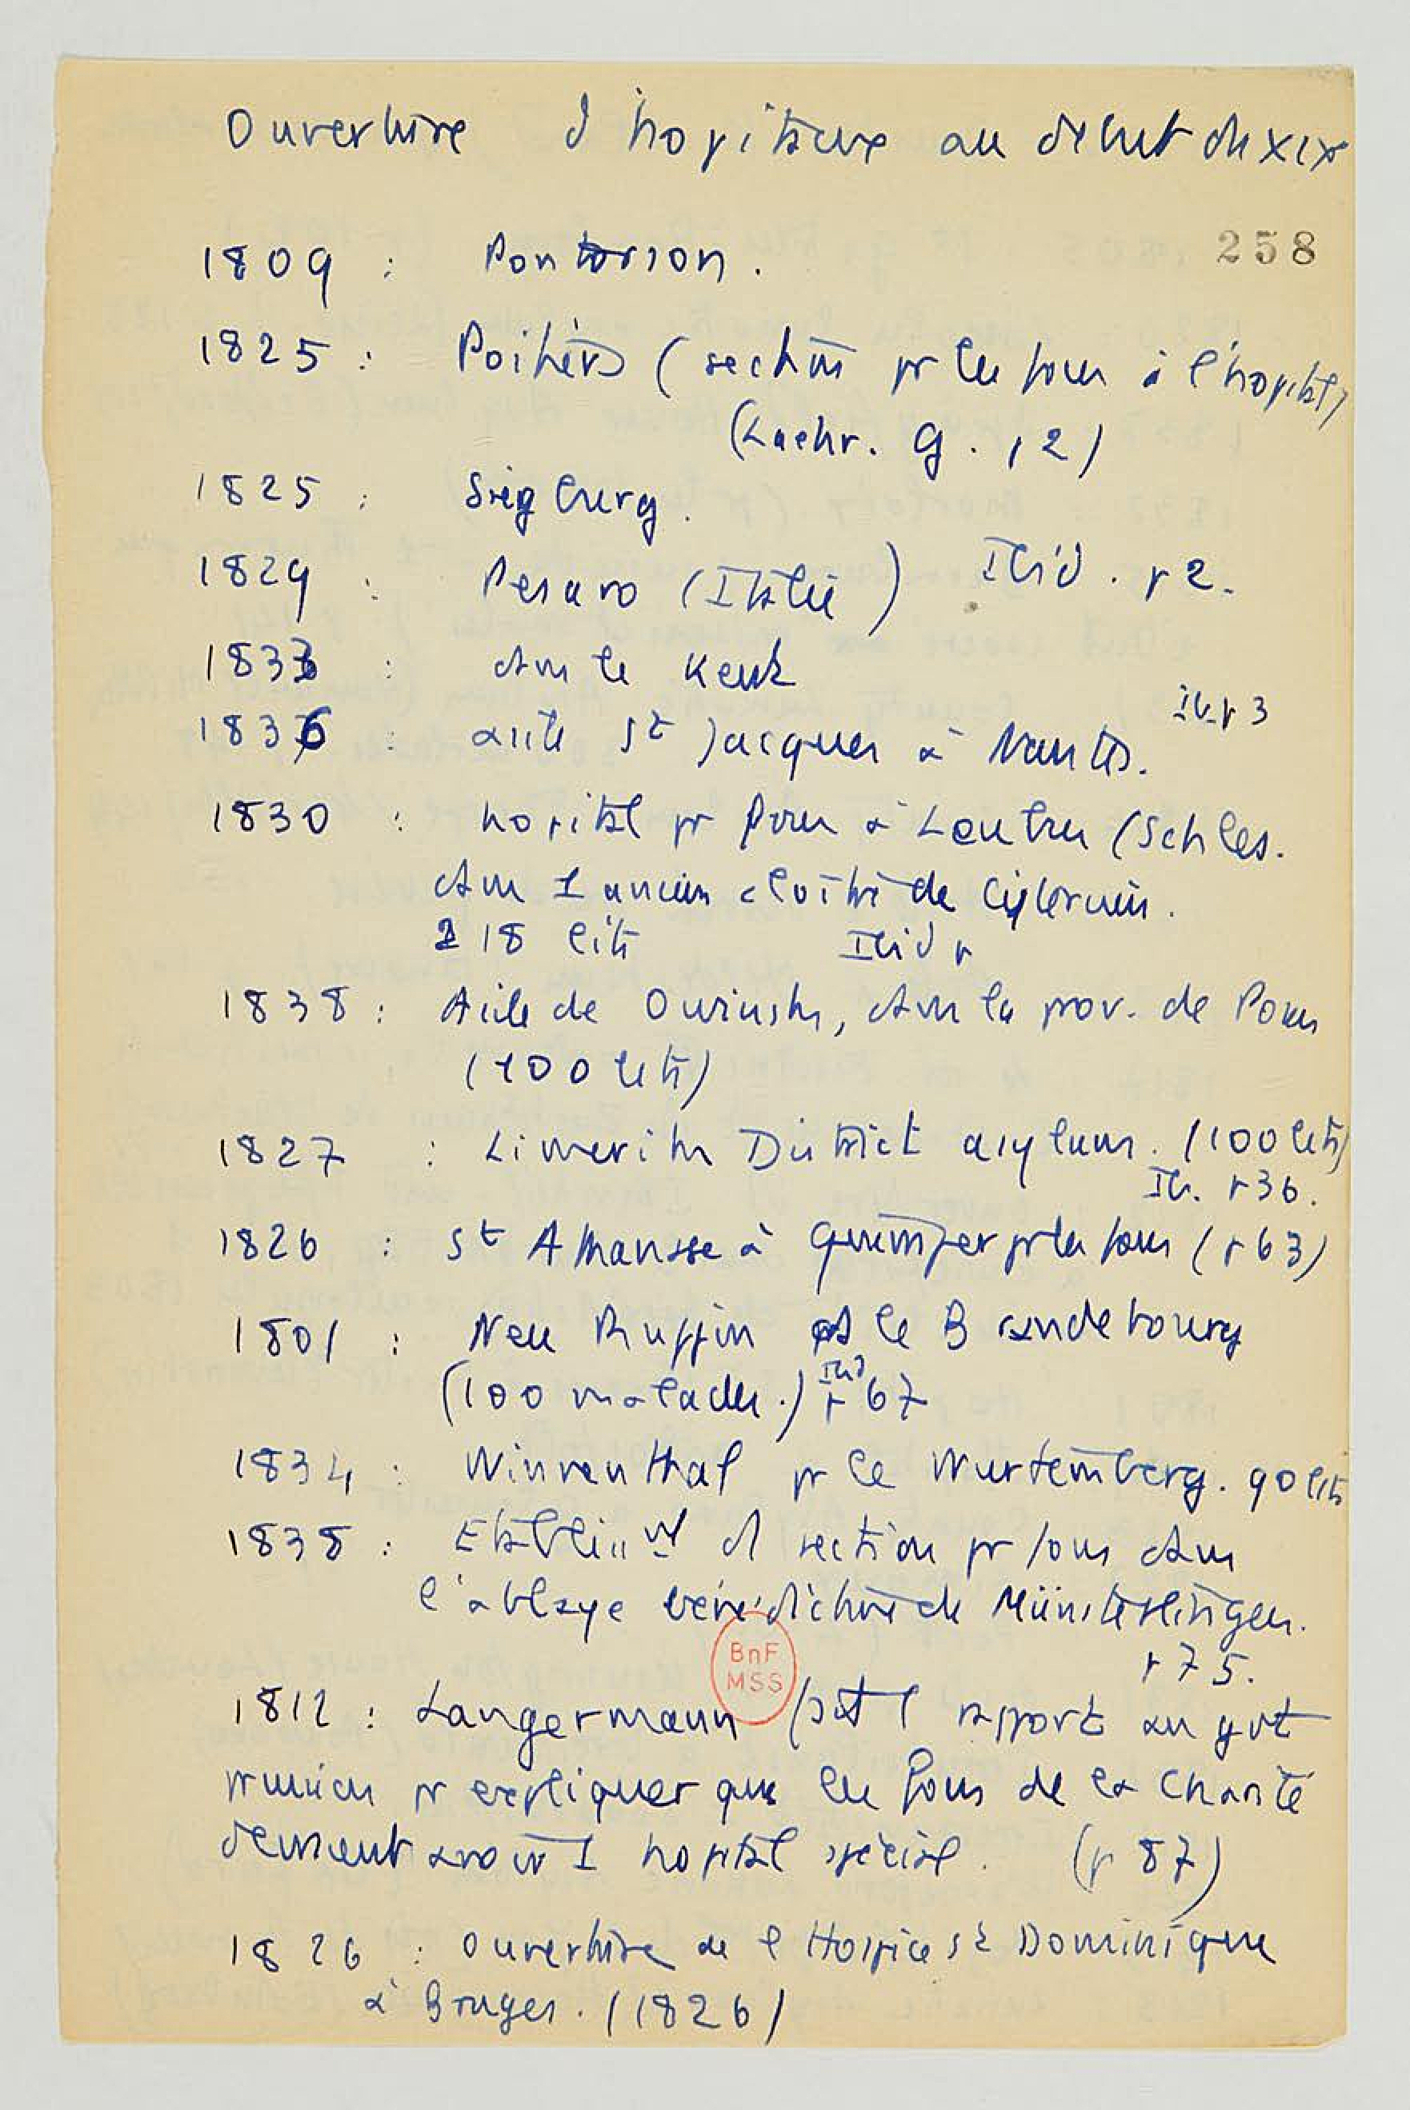 Ouverture d'hopitaux au debut du XIXe
258
1809 : Pontorson.
1825 : Poitiers (section pr les fous à l'hopital)
(Laehr. G. p 2)
1825 : Siegburg.
1829 : Pesaro (Italie) Ibid. p 2.
1833 : Dans le Kent
1836 : asile St Jacques à Nantes. ib. p 3
1830 : hopital pr fous à Leubus (Schles.
dans 1 ancien cloitre de
118 lits Ibid p
1838 : Asile de Owinsk, dans la prov. de Posen
(100 lits)
1827 : Limerick District asylum. (100 lits)
Ib. p 36.
1826 : St Athanase à Quimper pr les fous (p 63)
1801 : Neu Ruppin ds le Brandebourg
(100 malades.) Ibid p 67
1834 : Winnenthal pr le Wurtemberg. 90 lits
1838 : Etablisst d1 section pr fous dans
l'abbaye bénédictine de Münsterlingen.
p 75.
1812 : Langermann fait 1 rapport au gvt
prussien pr expliquer que les fous de la Charité
devraient avoir 1 hopital spécial. (p 87)
1826 : Ouverture de l'Hospice St Dominique
à Bruges. (1826)
BnF
MSS